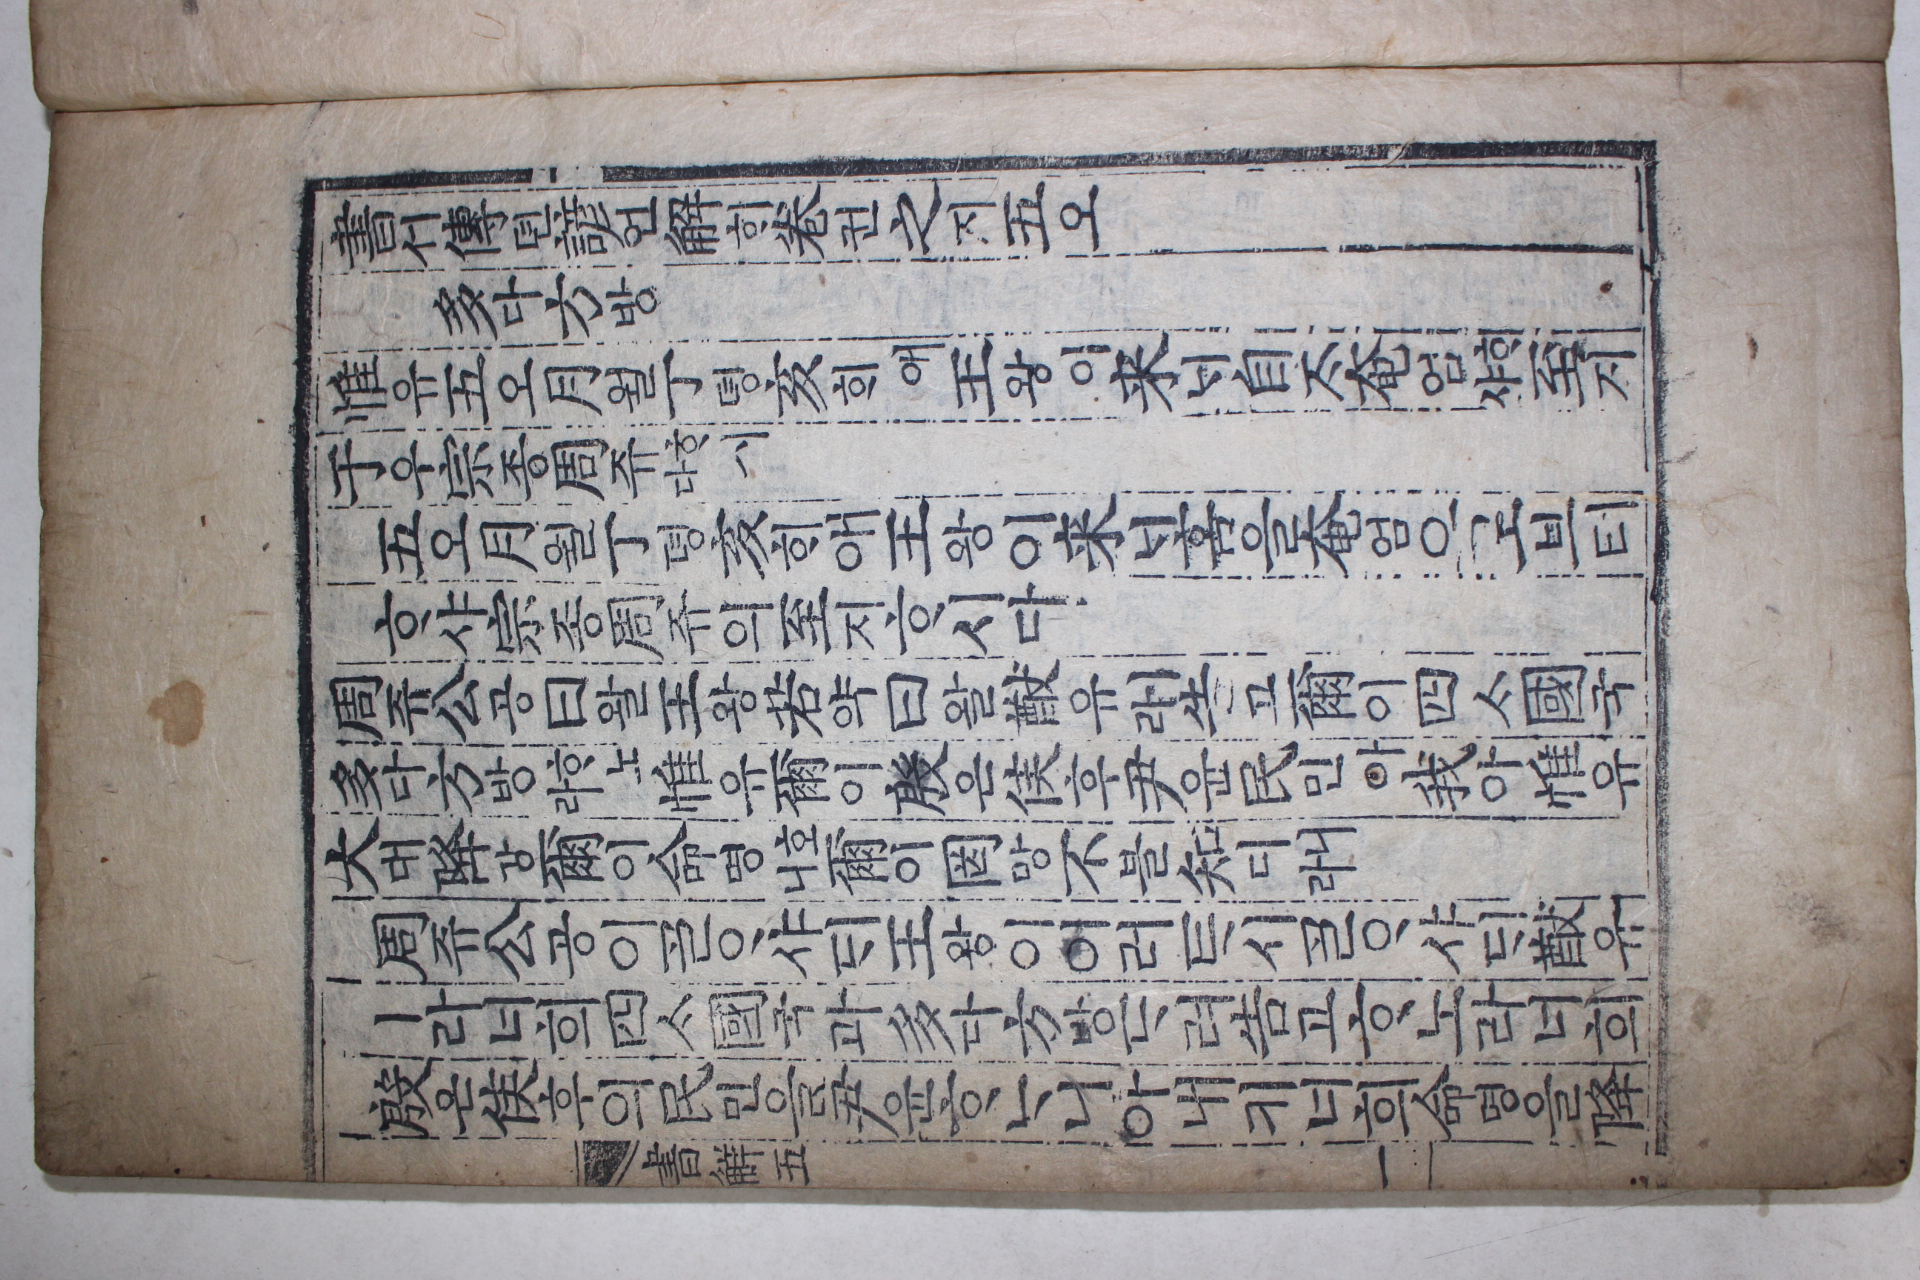 書셔傳뎐諺언解ᄒᆡ卷권之지五오
多다方방
惟유五오月월丁뎡亥ᄒᆡ예王왕이來ᄅᆡ自ᄌᆞ奄엄ᄒᆞ샤至지
于우宗종周쥬ᄒᆞ시다
五오月월丁뎡亥ᄒᆡ애王왕이來ᄅᆡ홈을奄엄으로브터
ᄒᆞ샤宗종周쥬의至지ᄒᆞ시다
周쥬公공曰왈王왕若약曰왈猷유ㅣ라告고爾이四ᄉᆞ國국
多다方방ᄒᆞ노라惟유爾이殷은侯후尹윤民민아我아惟유
大대降강爾이命명호니爾이罔망不블知디ᄒᆞ니라
周쥬公공이ᄀᆞᆯᄋᆞ샤ᄃᆡ王왕이이러ᄐᆞ시ᄀᆞᆯᄋᆞ샤ᄃᆡ猷유
ㅣ라너희四ᄉᆞ國국과多다方방ᄃᆞ려告고ᄒᆞ노라너희
殷은侯후의民민을尹윤ᄒᆞᄂᆞ니아내키너희命명을降
書解五 一